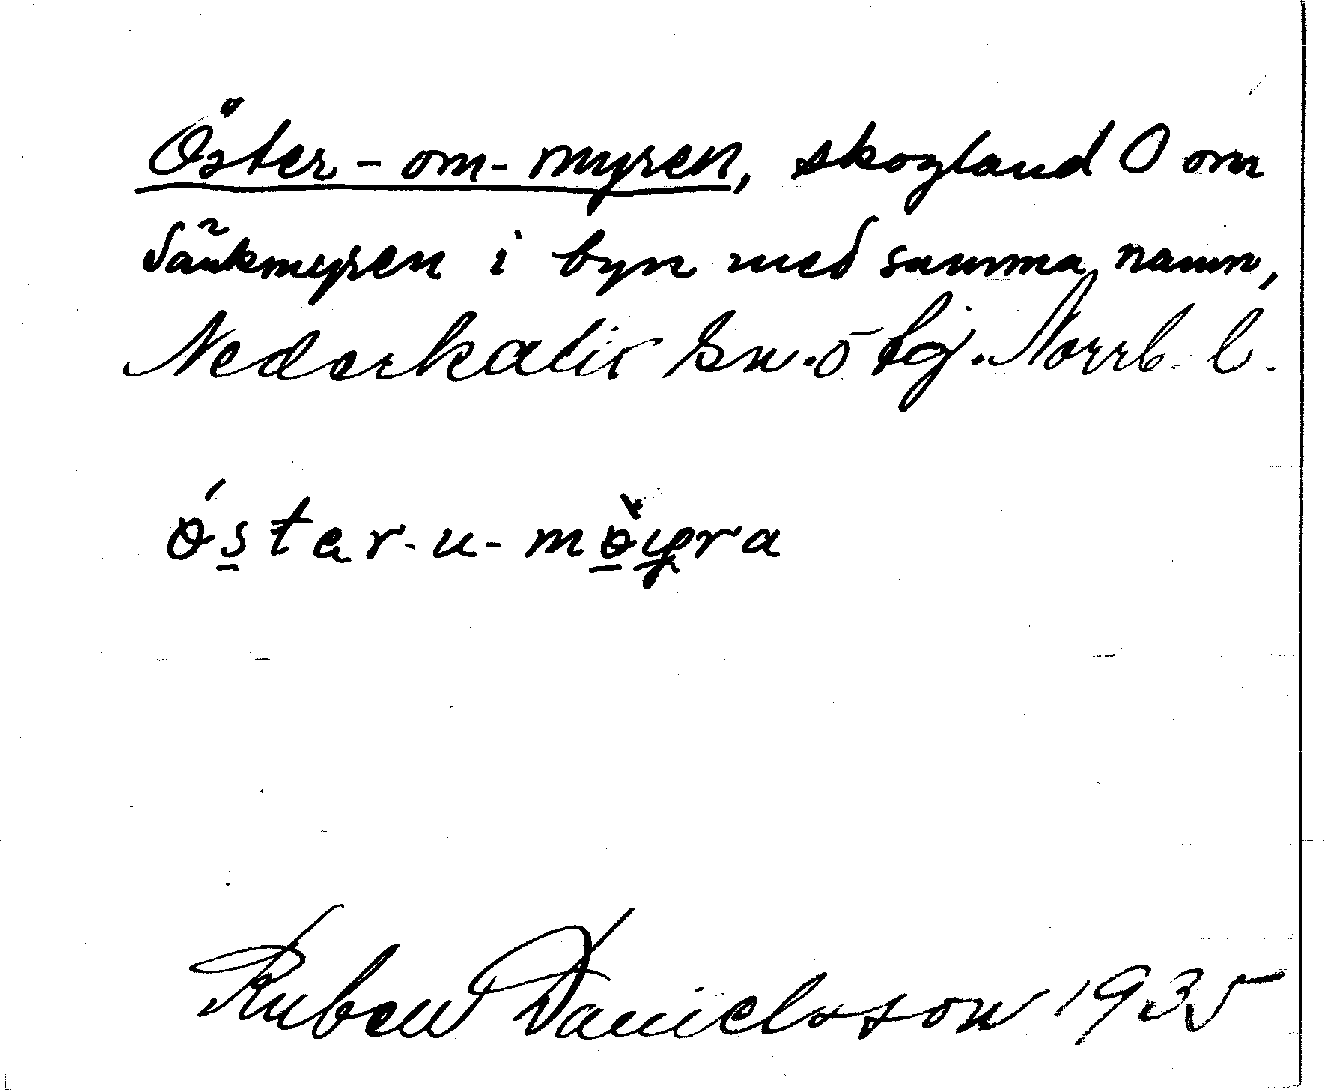 Öster-om-myren, skogland O om
Sänkmyren i byn med samma namn,
Nederkalix sn. ö tg. Norrb. l.
östar-u-möyra
Ruben Danielsson 1935